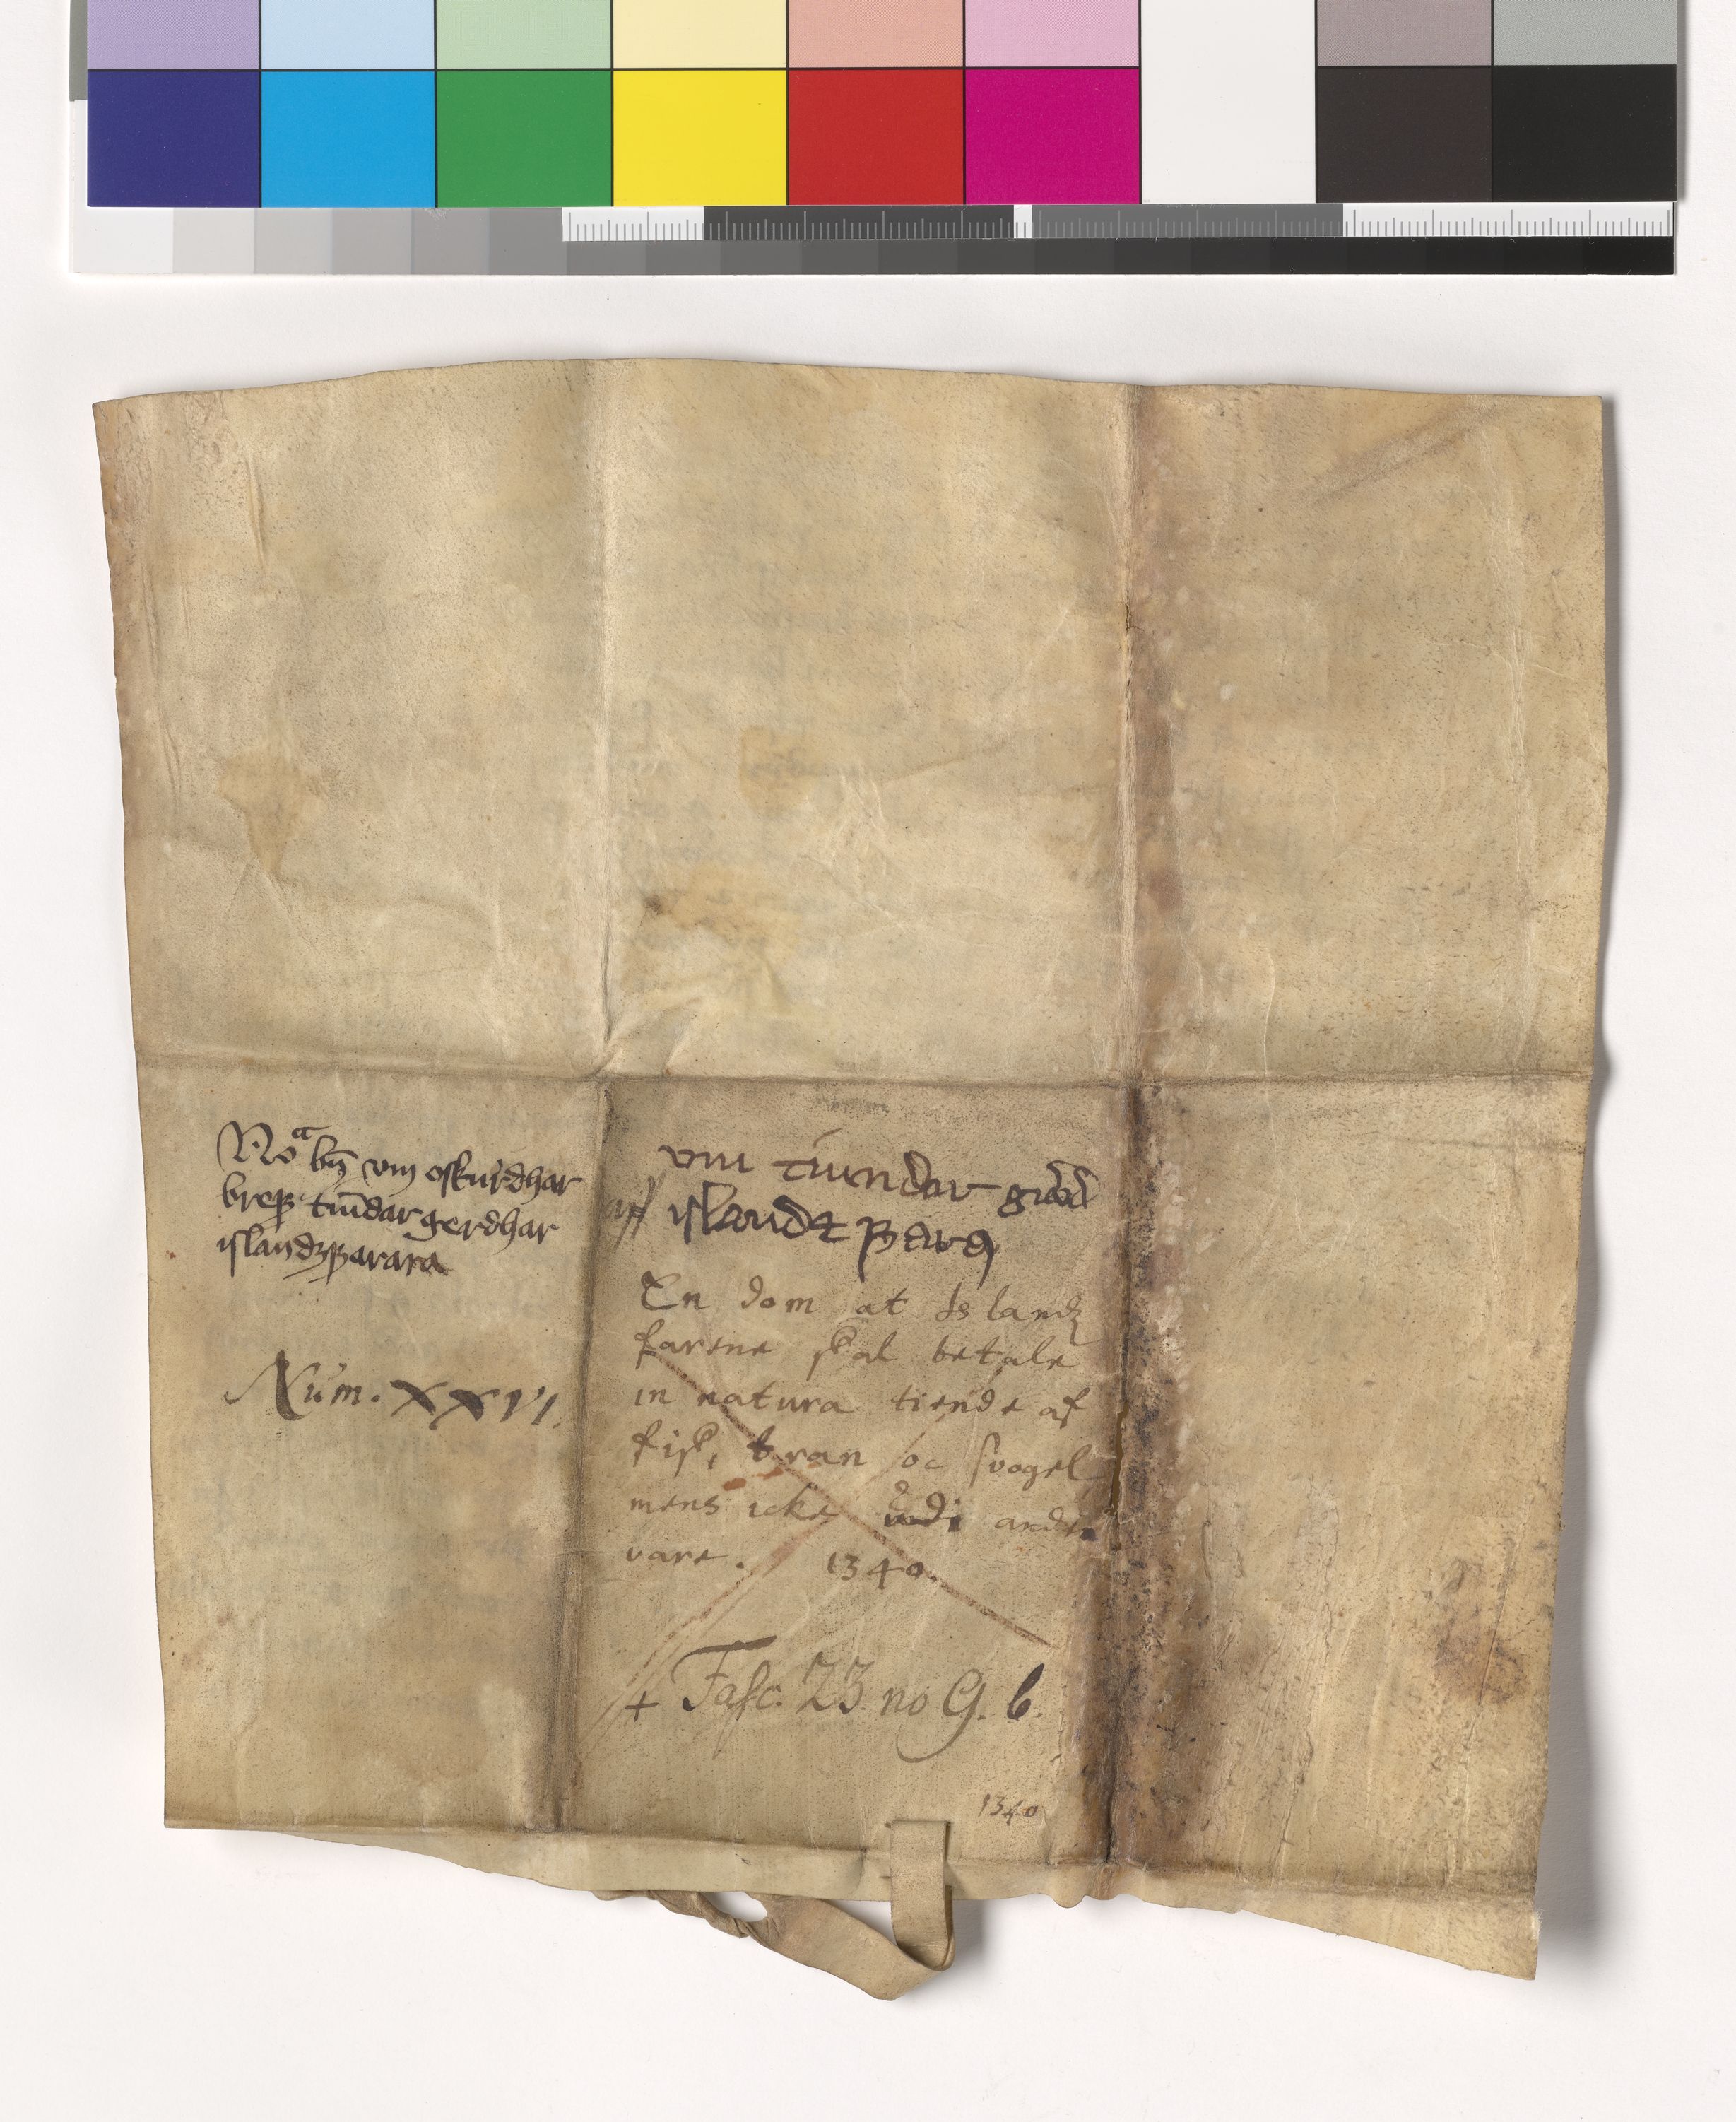 Noᵃ bͫ vm oskurdhar
breff tiūdar gerdhar
islandzffarara
Núm. XXVI.
vm tiundar giærd
aff islandz ffare
En dom at Islandz
farene skal betale
in natura tiende af
fisk, tran oc suogel
mens icke udi anden
vare. 1340.
+ Fasc. 23 no G. 6.
1340